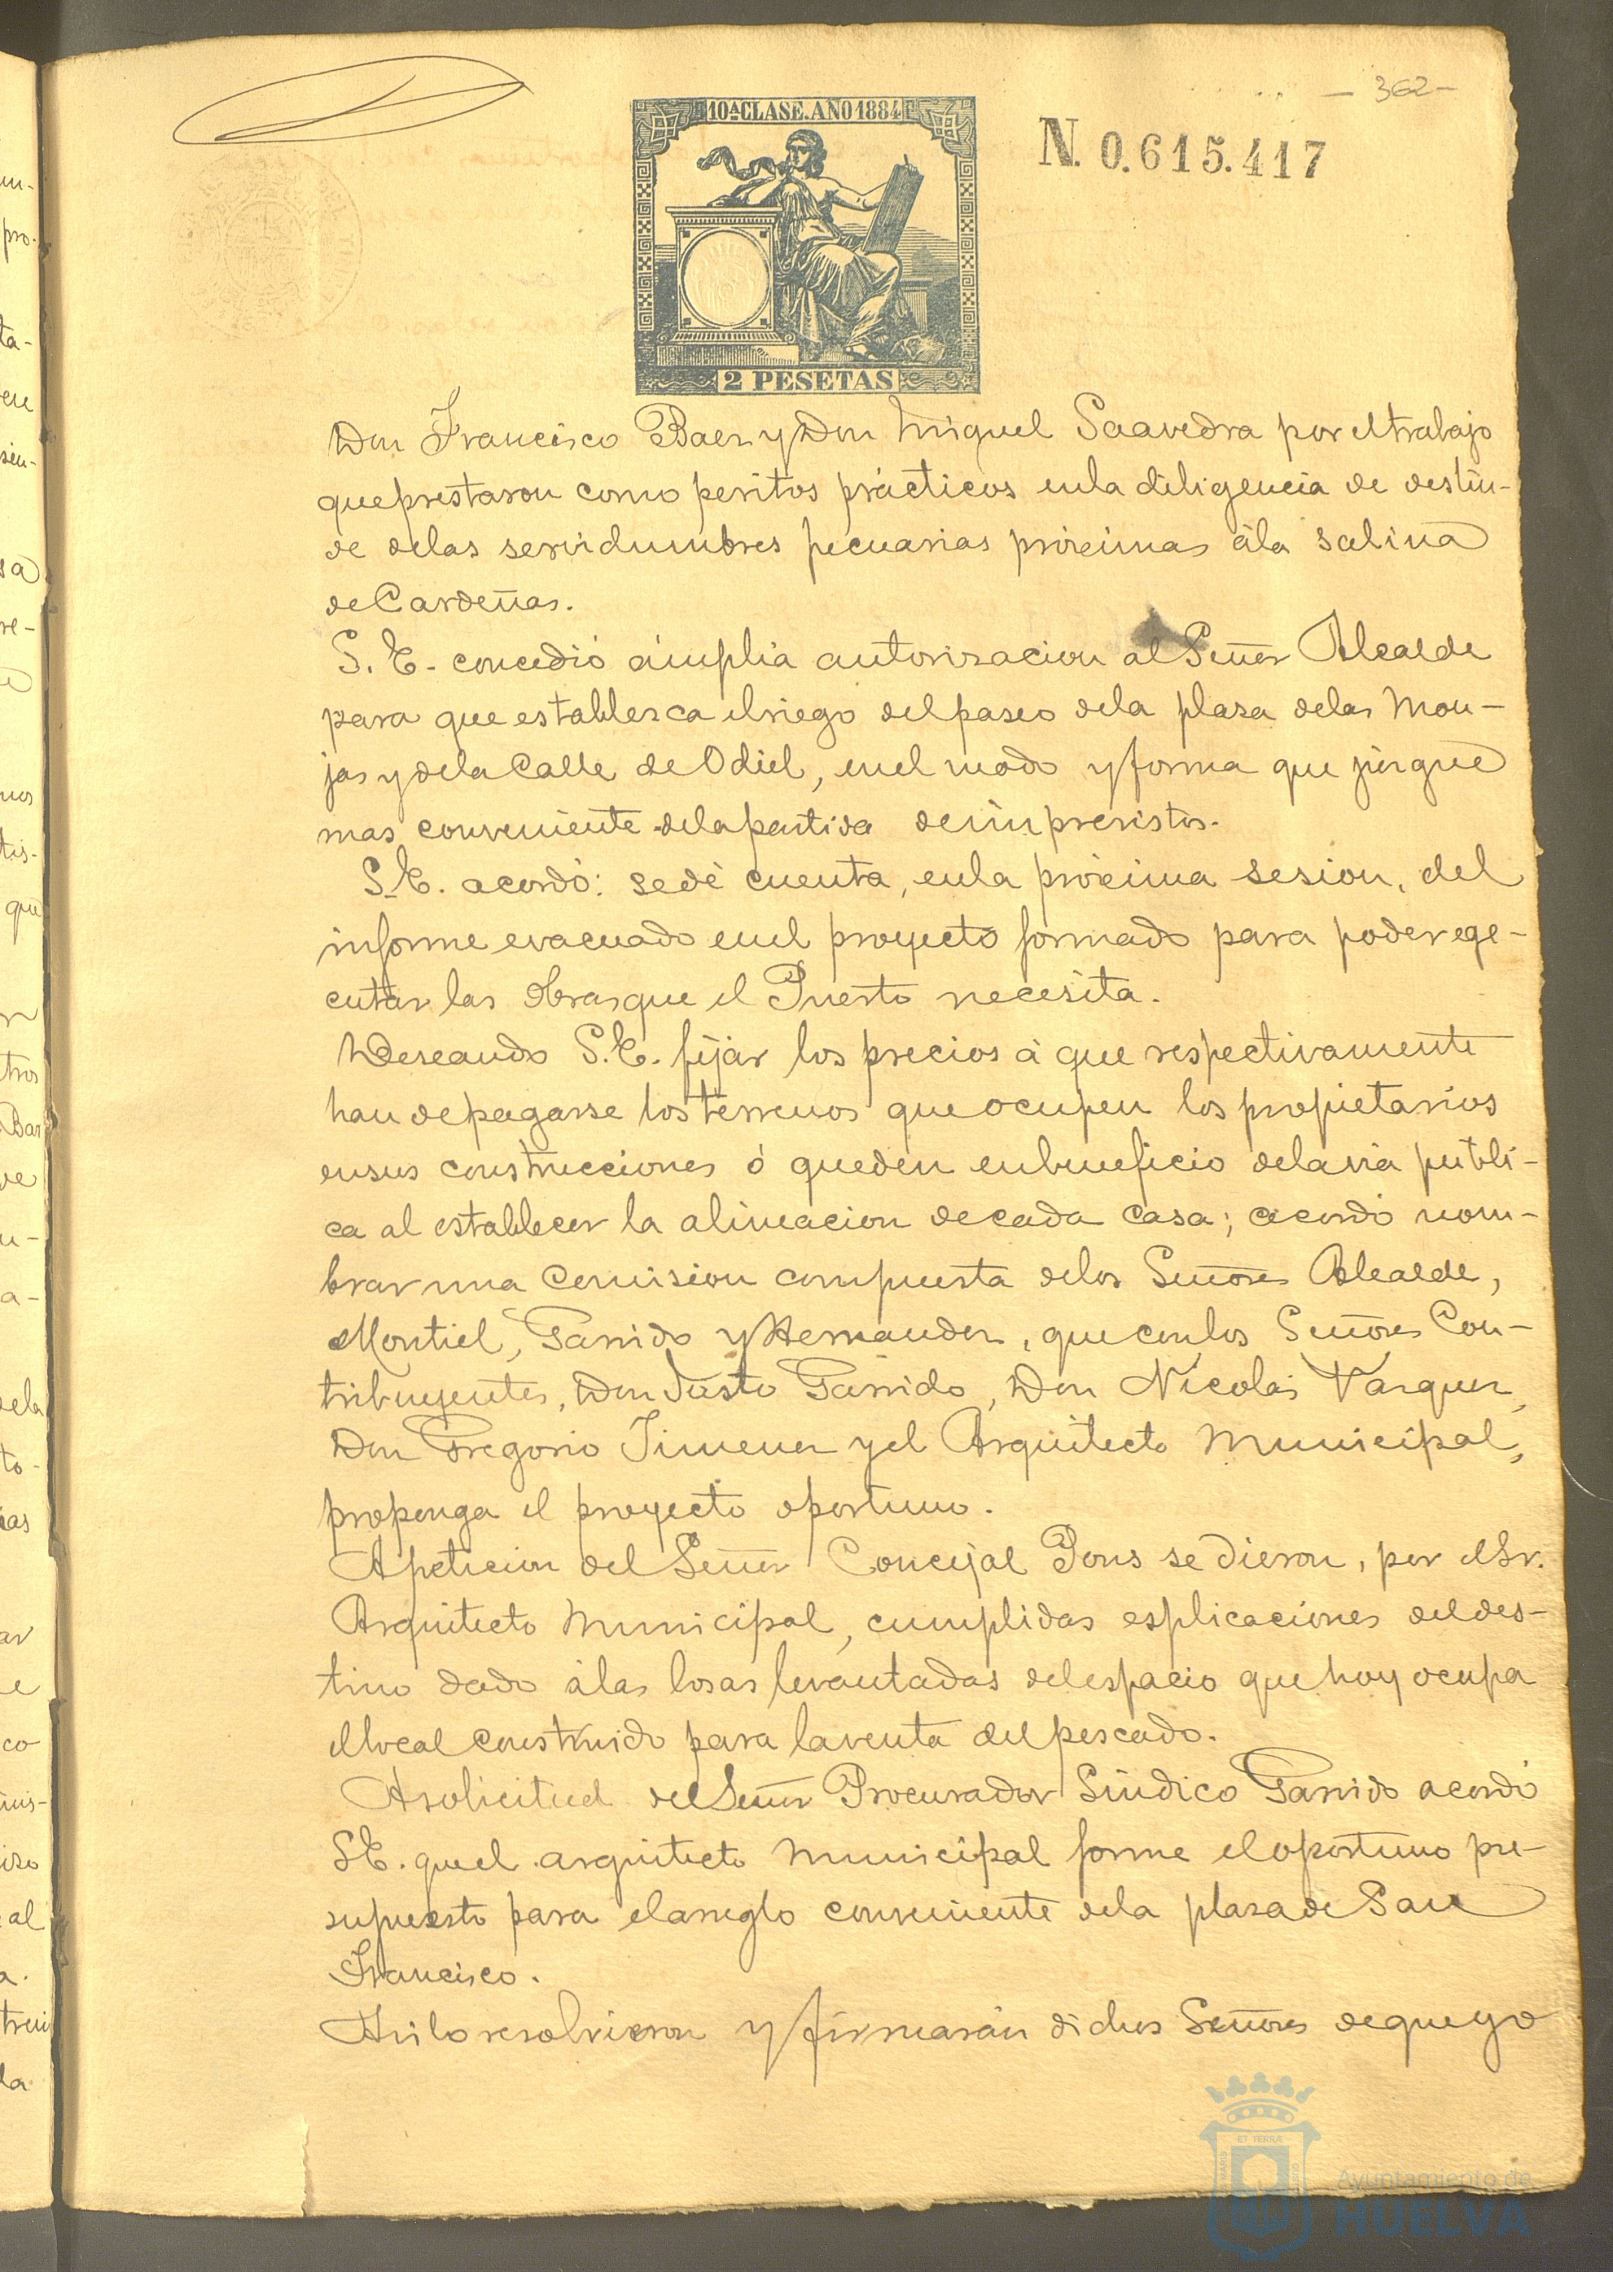 - 362 -
10ª CLASE. AÑO 1884
N. 0.615.417
2 PESETAS
Don Francisco Baez y Don Miguel Saavedra por el trabajo
que prestaron como peritos prácticos en la diligencia de deslin-
de de las servidumbres pecuarias próximas á la salina
de Cardeñas.
S. E. concedió ámplia autorizacion al Señor Alcalde
para que establezca el riego del paseo de la plaza de las Mon-
jas y de la Calle de Odiel, en el modo y forma que juzgue
mas conveniente de la partida de imprevistos.
S. E. acordó: se dé cuenta, en la próxima sesion, del
informe evacuado en el proyecto formado para poder ege-
cutar las obras que el Puerto necesita.
Deseando S. E. fijar los precios á que respectivamente
han de pagarse los terrenos que ocupen los propietarios
en sus construcciones ó queden en beneficio de la via públi-
ca al establecer la alineacion de cada casa; acordó nom-
brar una Comision compuesta de los Señores Alcalde,
Montiel, Garrido y Hernandez, que con los Señores Con-
tribuyentes, Don Justo Garrido, Don Nicolás Vazquez,
Don Gregorio Jimenez y el Arquitecto Municipal,
proponga el proyecto oportuno.
A peticion del Señor Concejal Pons se dieron, por el Sr.
Arquitecto Municipal, cumplidas esplicaciones del des-
tino dado á las losas levantadas del espacio que hoy ocupa
el local construido para la venta del pescado.
A solicitud del Señor Procurador Síndico Garrido acordó
S. E. que el arquitecto Municipal forme el oportuno pre-
supuesto para el arreglo conveniente de la plaza de San
Francisco.
Asi lo resolvieron y firmarán dichos Señores de que yo
Ayuntamiento de
HUELVA